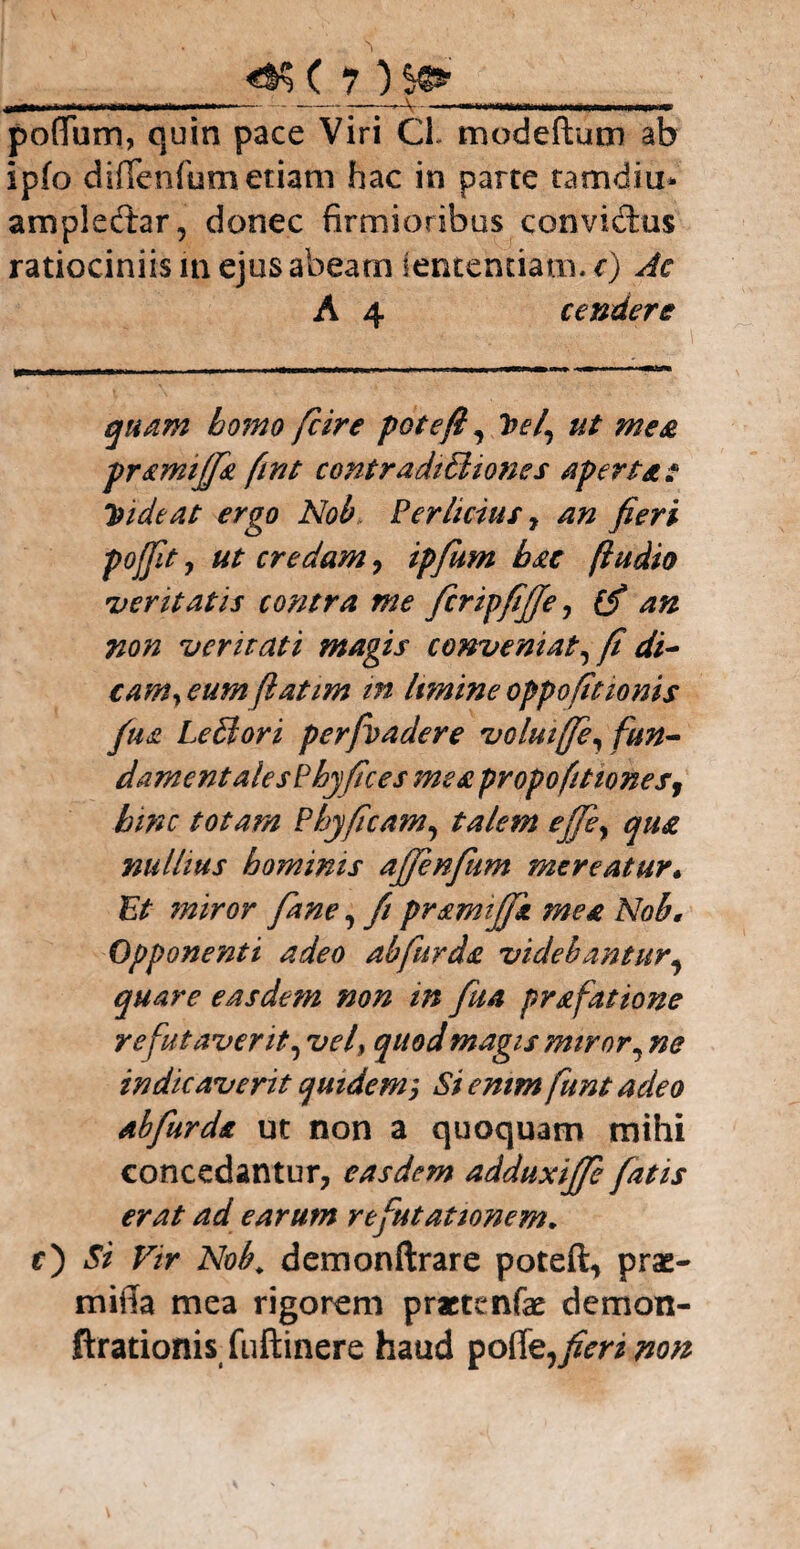 ( 7 )
poſſum, quin pace Viri Cl. modeſtum ab
ipſo diſſenſum etiam hac in parte tamdiu-
amplectar, donec firmioribus convictus
ratiociniis in ejus abeam ſententiam. c) Ac
A 4 cendere
quam homo ſcire poteſt, vel, ut meæ
præmiſſæ ſint contradictiones apertæ:
videat ergo Nob. Perlicius, an fieri
poſſit, ut credam, ipſum hæc ſtudio
veritatis contra me ſcripſiſſe, & an
non veritati magis conveniat, ſi di-
cam, eum ſtatim in limine oppoſitionis
ſuæ Lectori perſvadere voluiſſe, fun-
damentales Phyſices meæ propoſitiones,
hinc totam Phyſicam, talem eſſe, quæ
nullius hominis aſſenſum mereatur.
Et miror ſane, ſi præmiſſæ meæ Nob.
Opponenti adeo abſurdæ videbantur,
quare easdem non in ſua præfatione
refutaverit, vel, quod magis miror, ne
indicaverit quidem; Si enim ſunt adeo
abſurdæ ut non a quoquam mihi
concedantur, easdem adduxiſſe ſatis
erat ad earum refutationem.
c) Si Vir Nob. demonſtrare poteſt, præ-
miſſa mea rigorem prætenſæ demon-
ſtrationis ſuſtinere haud poſſe, fieri non